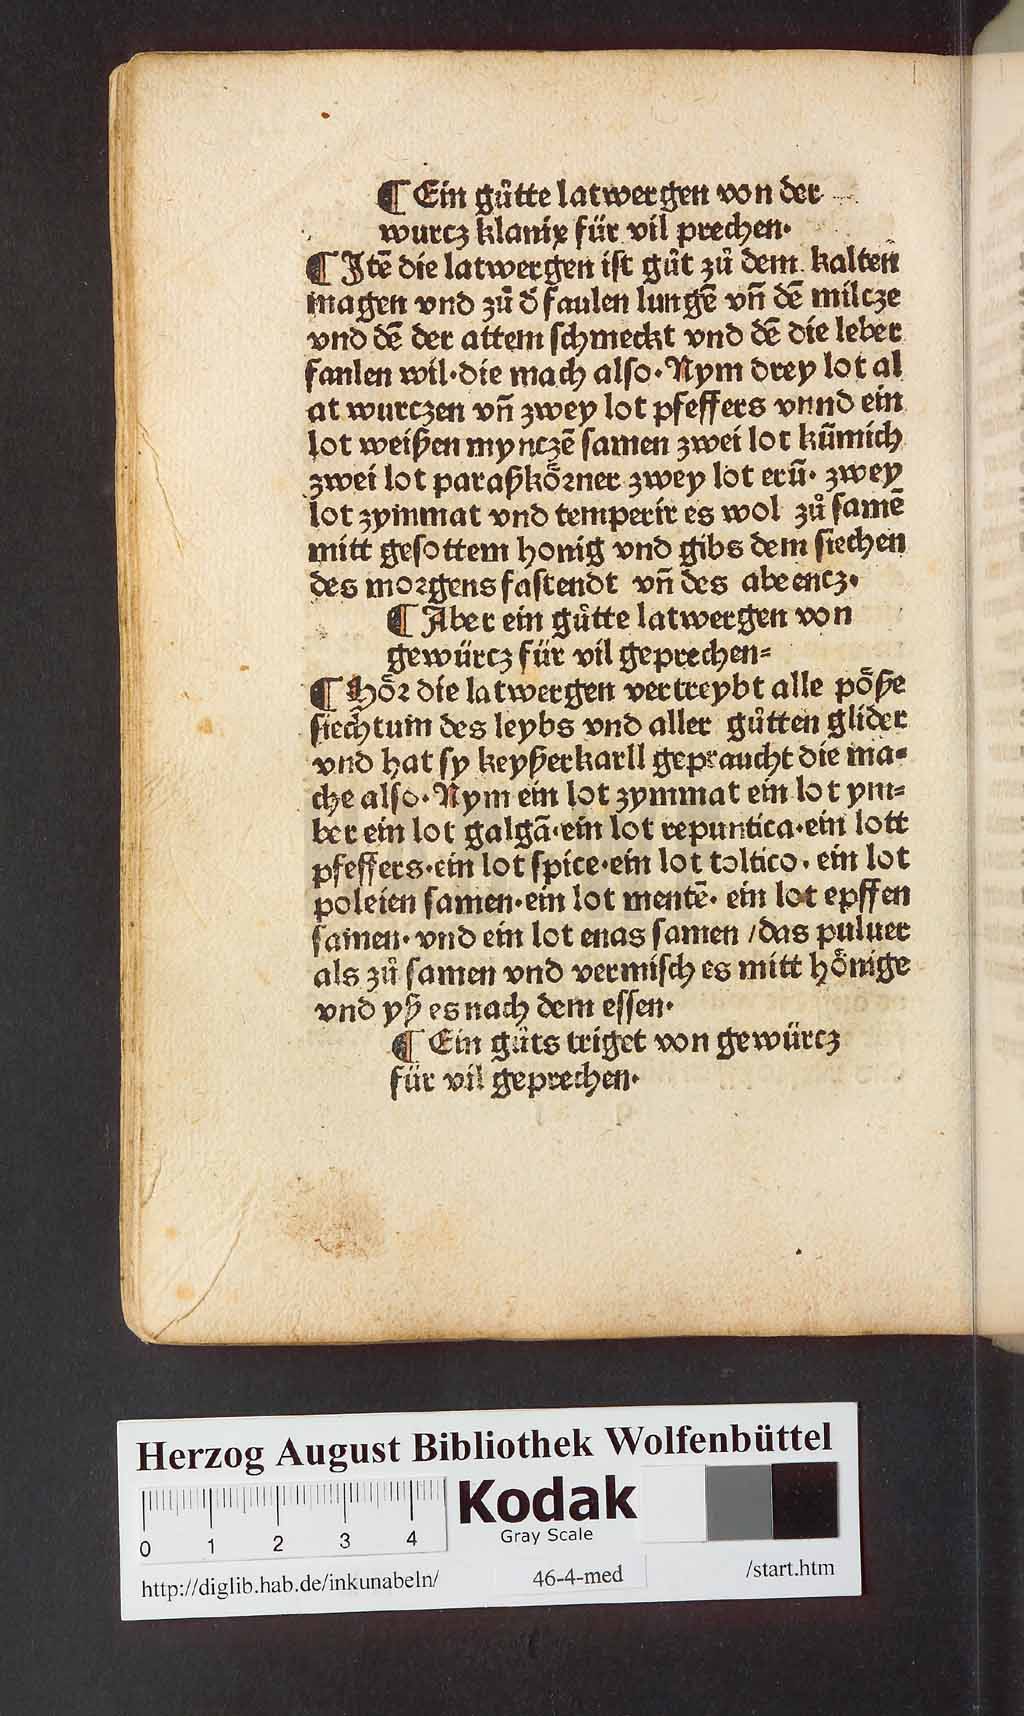 ¶ Ein gůtte latwergen von der
wurcz klanix für vil prechen·
¶ Jtē die latwergen ist gůt zů dem kalten
magen vnd zů d̄ faulen lungē vn̄ dē milcze
vnd dē der attem schmeckt vnd dē die leber
faulen wil·die mach also·Nym drey lot al
at wurczen vn̄ zwey lot pfeffers vnnd ein
lot weißen mynczē samen zwei lot kūmich
zwei lot paraßkoͤrner zwey lot erū· zwey
lot zymmat vnd temperir es wol zů samē
mitt gesottem honig vnd gibs dem siechen
des morgens fastendt vn̄ des abeencz·
¶ Aber ein gůtte latwergen von
gewürcz für vil geprechen=
¶ Hoͤr die latwergen vertreybt alle poͤße
siechtum des leybs vnd aller gůtten glider
vnd hat sy keyßerkarll gepraucht die ma=
che also·Nym ein lot zymmat ein lot ym=
ber ein lot galgā·ein lot repuntica·ein lott
pfeffers·ein lot spice·ein lot toltico· ein lot
poleien samen·ein lot mentē· ein lot epffen
samen· vnd ein lot enas samen /das puluer
als zů samen vnd vermisch es mitt hoͤnige
vnd yß es nach dem essen·
¶ Ein gůts triget von gewürcz
für vil geprechen·
Herzog August Bibliothek Wolfenbüttel
Kodak
Gray Scale
0 1 2 3 4
http://diglib.hab.de/inkunabeln/ 46-4-med /start.htm